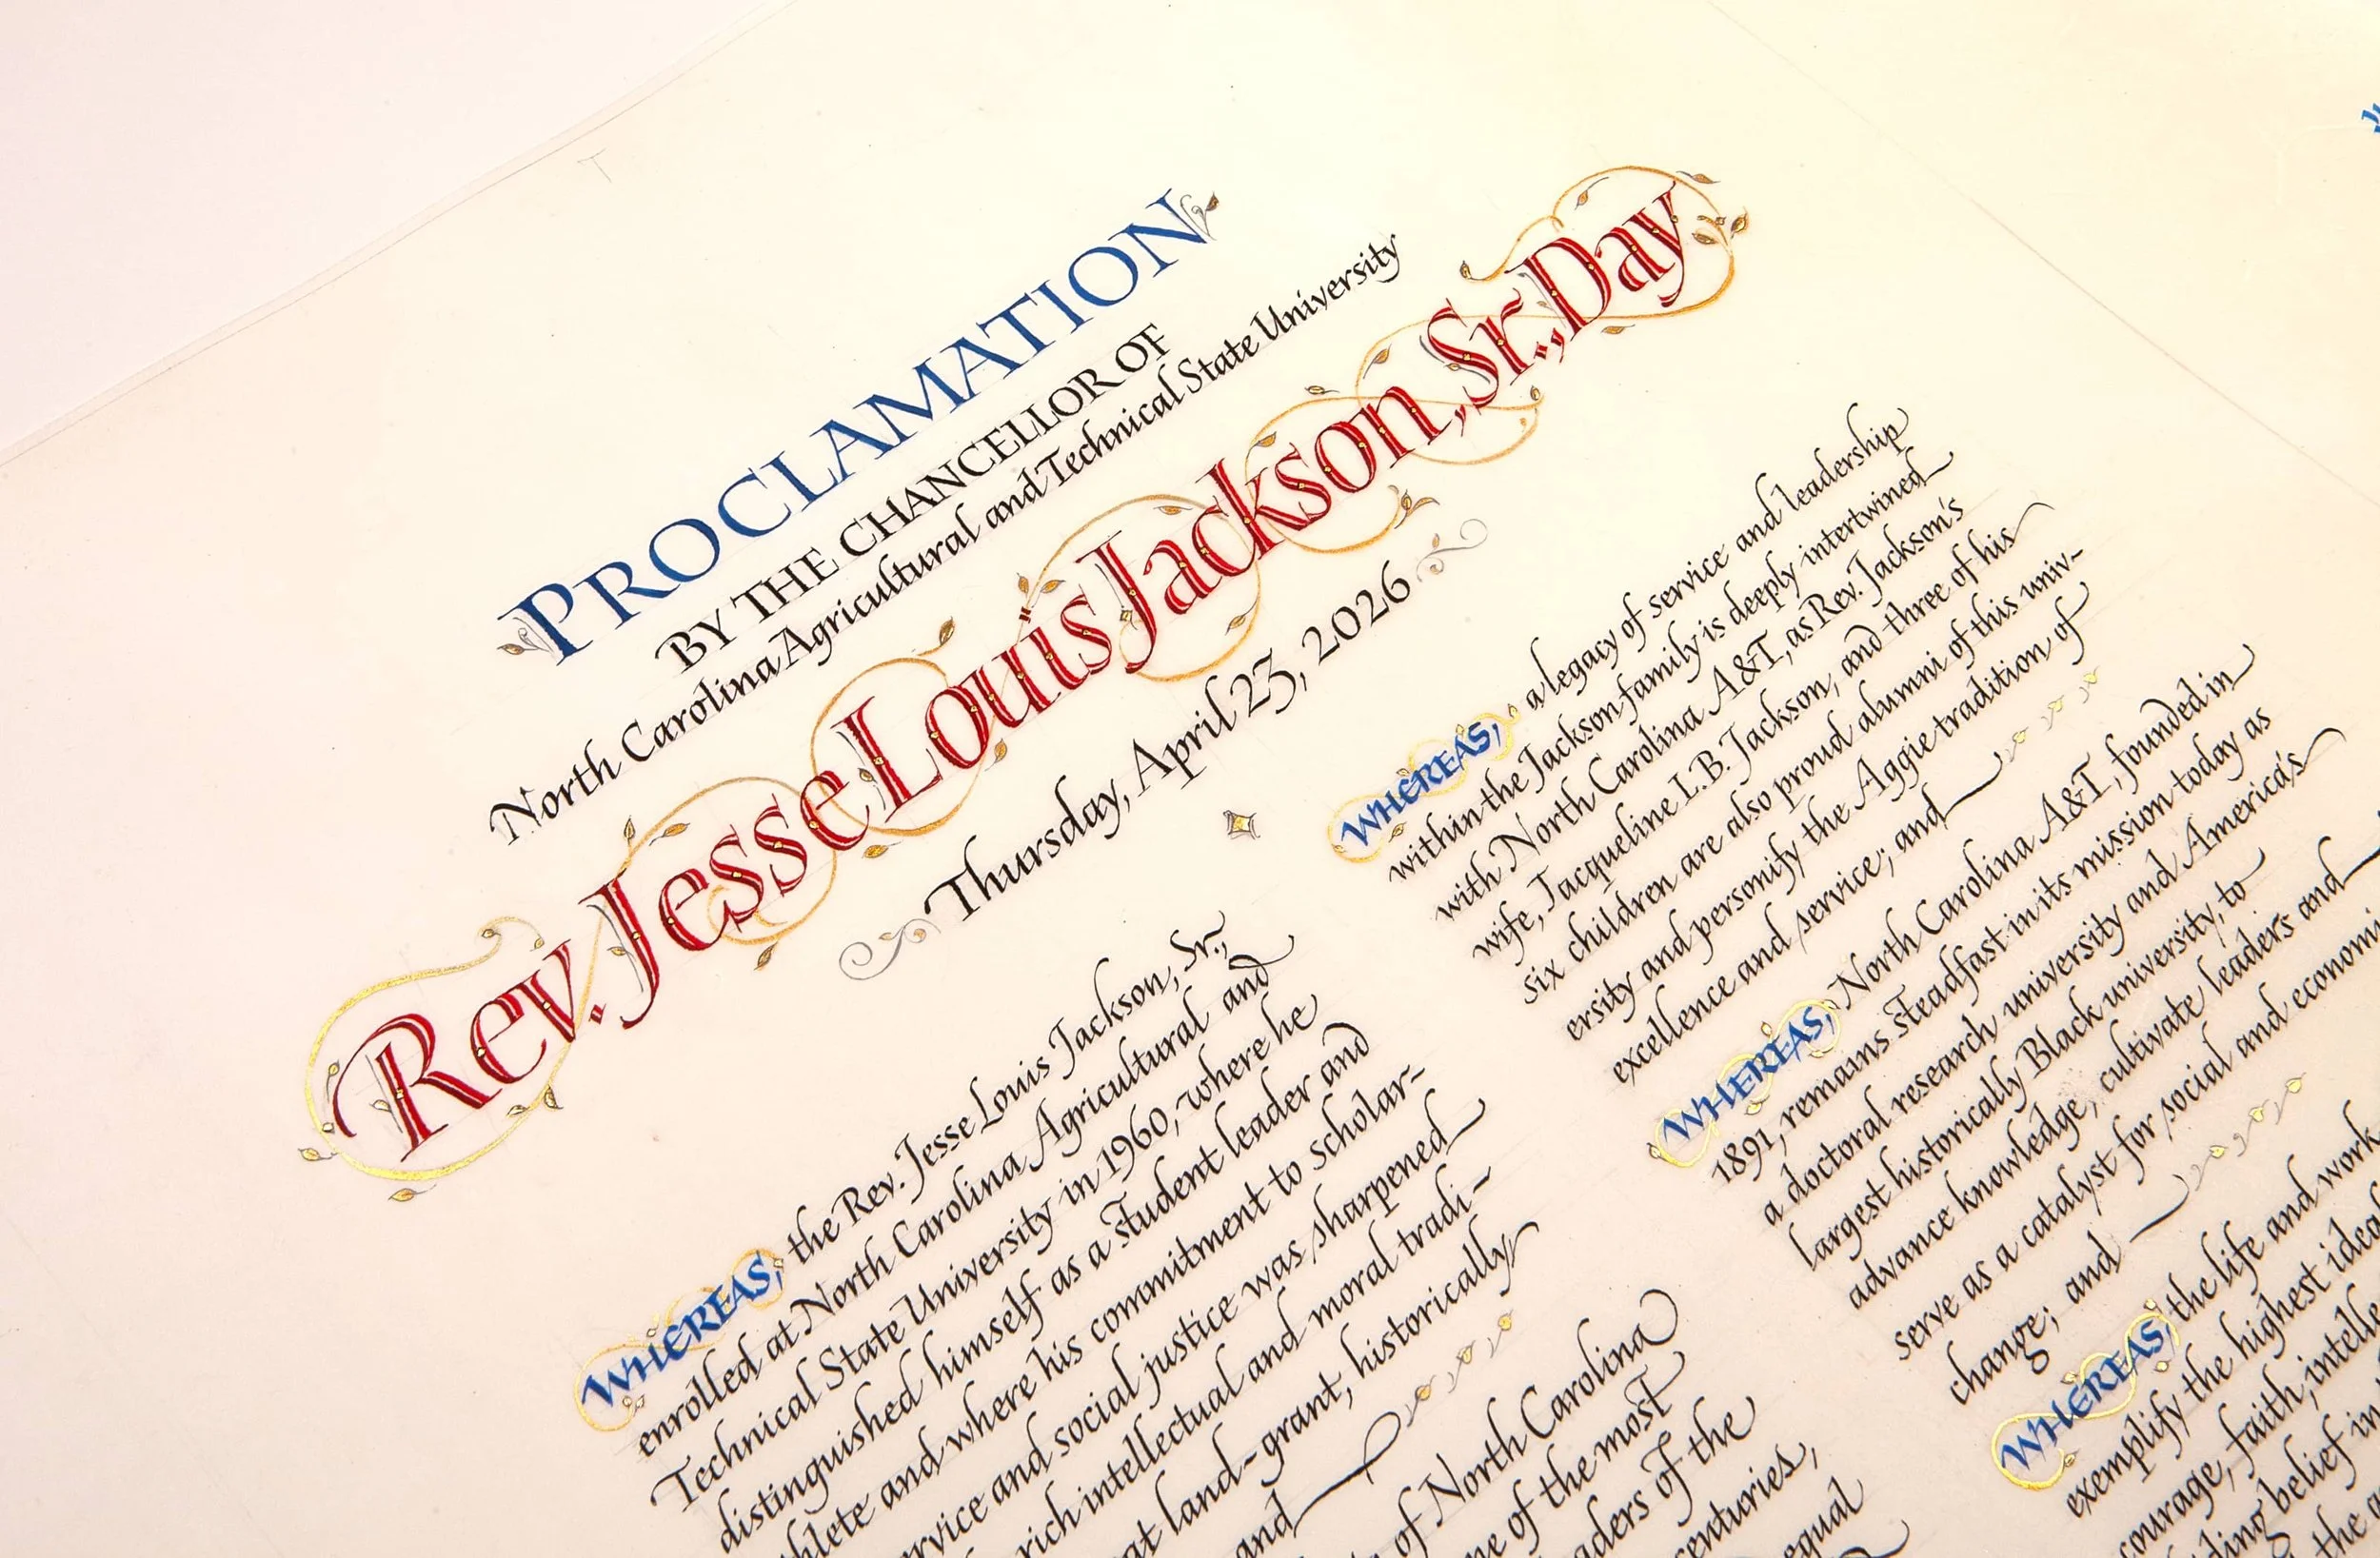 PROCLAMATION
BY THE CHANCELLOR OF
North Carolina Agricultural and Technical State University
Rev. Jesse Louis Jackson, Sr., Day
Thursday, April 23, 2026
WHEREAS, the Rev. Jesse Louis Jackson, Sr.,
enrolled at North Carolina Agricultural and
Technical State University in 1960, where he
distinguished himself as a student leader and
and where his commitment to scholar-
and social justice was sharpened
rich intellectual and moral tradi-
land-grant, historically
and
of North Carolina
of the most
of the
equal
WHEREAS, a legacy of service and leadership
within the Jackson family is deeply intertwined
with North Carolina A&T, as Rev. Jackson's
wife, Jacqueline L.B. Jackson, and three of his
six children are also proud alumni of this univ-
ersity and personify the Aggie tradition of
excellence and service; and
WHEREAS, North Carolina A&T, founded in
1891, remains steadfast in its mission today as
a doctoral research university and America's
largest historically Black university, to
advance knowledge, cultivate leaders and
serve as a catalyst for social and economi
change; and
WHEREAS, the life and work
exemplify the highest ideal
faith, intelle
belief in
the